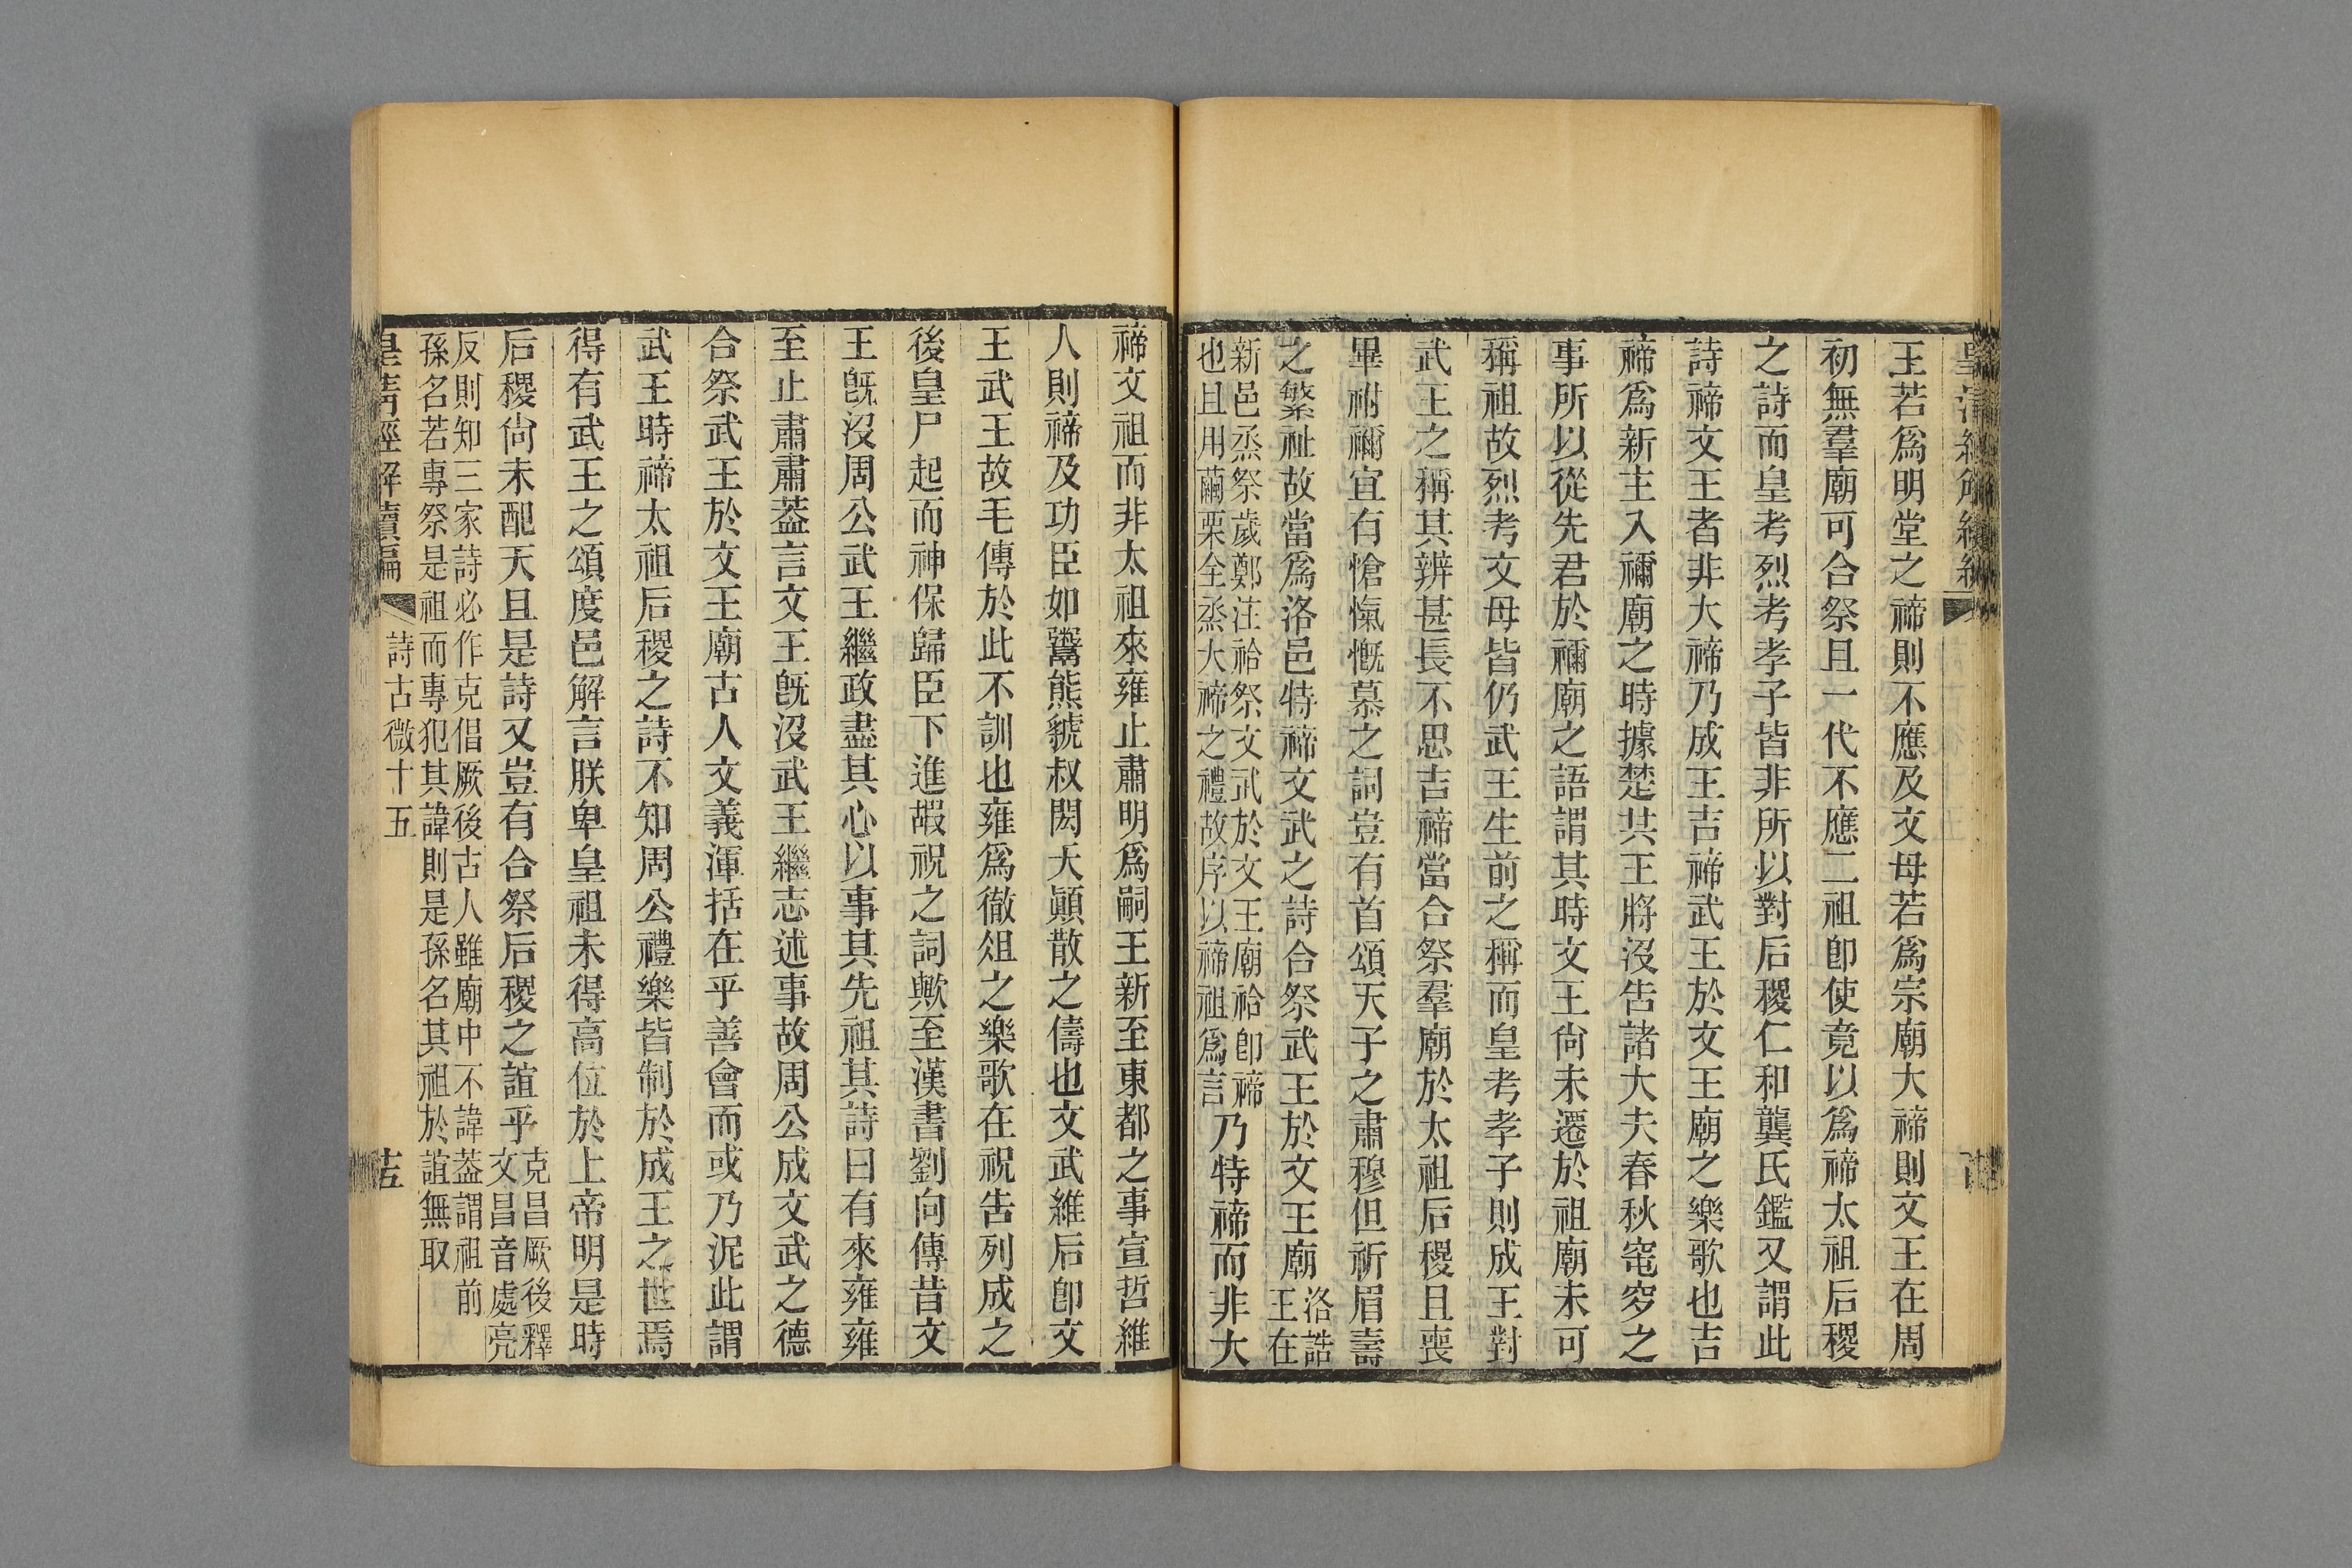 王若爲明堂之禘則不應及文母若爲宗廟大禘則文王在周
初無羣廟可合祭且一代不應二祖卽使竟以爲禘太祖后稷
之詩而皇考烈考孝子皆非所以對后稷仁和龔氏鑑又謂此
詩禘文王者非大禘乃成王吉禘武王於文王廟之樂歌也吉
禘爲新主入禰廟之時據楚共王將沒告諸大夫春秋窀穸之
事所以從先君於禰廟之語謂其時文王尙未遷於祖廟未可
稱祖故烈考文母皆仍武王生前之稱而皇考孝子則成王對
武王之稱其辨甚長不思吉禘當合祭羣廟於太祖后稷且喪
畢祔禰宜有愴愾慨慕之詞豈有首頌天子之肅穆但祈眉壽
之繁祉故當爲洛邑特禘文武之詩合祭武王於文王廟洛誥
王在
新邑烝祭歲鄭注祫祭文武於文王廟祫卽禘
也且用繭栗全烝大禘之禮故序以禘祖爲言乃特禘而非大
禘文祖而非太祖來雍止肅明爲嗣王新至東都之事宣哲維
人則禘及功臣如鬻熊虢叔閎夭顚散之儔也文武維后卽文
王武王故毛傳於此不訓也雍爲徹俎之樂歌在祝告列成之
後皇尸起而神保歸臣下進嘏祝之詞歟至漢書劉向傳昔文
王旣沒周公武王繼政盡其心以事其先祖其詩曰有來雍雍
至止肅肅葢言文王旣沒武王繼志述事故周公成文武之德
合祭武王於文王廟古人文義渾括在乎善會而或乃泥此謂
武王時禘太祖后稷之詩不知周公禮樂皆制於成王之世焉
得有武王之頌度邑解言朕卑皇祖未得高位於上帝明是時
后稷尙未配天且是詩又豈有合祭后稷之誼乎克昌厥後釋
文昌音處亮
反則知三家詩必作克倡厥後古人雖廟中不諱葢謂祖前
孫名若專祭是祖而專犯其諱則是孫名其祖於誼無取
皇淸經解續編
詩古微十五